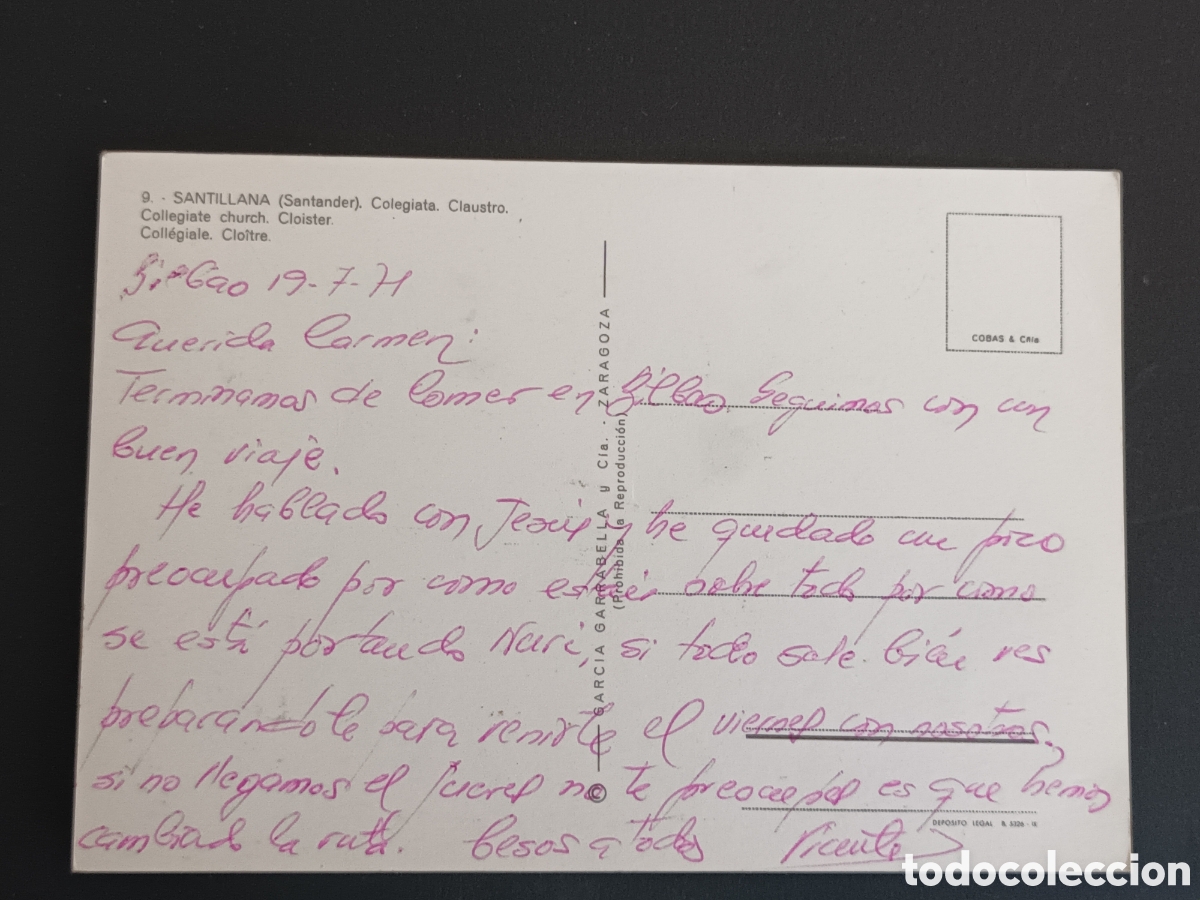 9. - SANTILLANA (Santander). Colegiata. Claustro.
Collegiate church. Cloister.
Collégiale. Cloître.
Bilbao 19-7-71
Querida Carmen:
Terminamos de comer en Bilbao. Seguimos con un
buen viaje.
He hablado con Jesús y he quedado un poco
preocupado por como estáis sobre todo por como
se está portando Nuri, si todo sale bién ves
preparándote para venirte el viernes con nosotros,
si no llegamos el jueves no te preocupes es que hemos
cambiado la ruta. Besos a todos Vicente
GARCIA GARRABELLA y Cía. - ZARAGOZA
(Prohibida la Reproducción)
©
COBAS & Cnía
DEPOSITO LEGAL B. 5326 -
todocoleccion